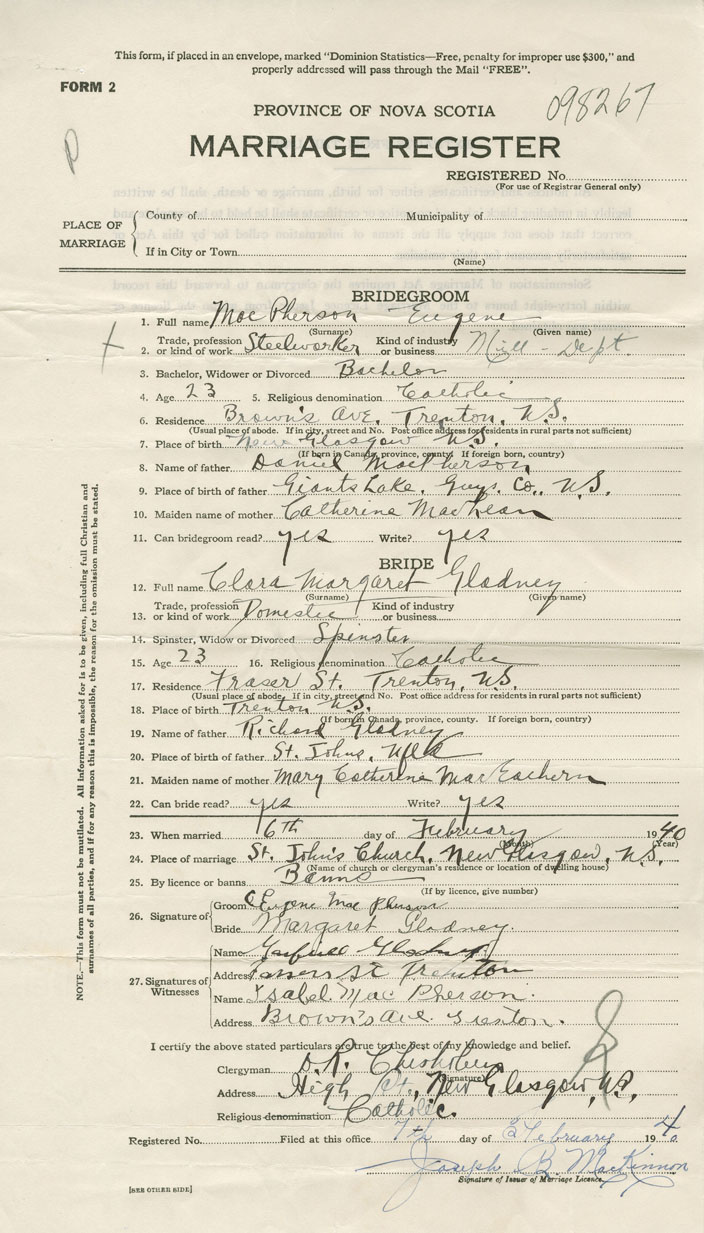 This form, if placed in an envelope, marked "Dominion Statistics—Free, penalty for improper use $300," and
properly addressed will pass through the Mail "FREE".
FORM 2
098267
PROVINCE OF NOVA SCOTIA
P
MARRIAGE REGISTER
REGISTERED No.
(For use of Registrar General only)
PLACE OF MARRIAGE
County of Municipality of
If in City or Town
(Name)
BRIDEGROOM
1. Full name MacPherson Eugene
(Surname) (Given name)
2. Trade, profession or kind of work Steelworker Kind of industry or business Mill - Dept.
3. Bachelor, Widower or Divorced Bachelor
4. Age 23 5. Religious denomination Catholic
6. Residence Brown's Ave, Trenton, N.S.
(Usual place of abode. If in city, street and No. Post office address for residents in rural parts not sufficient)
7. Place of birth New Glasgow N.S.
(If born in Canada, province, county. If foreign born, country)
8. Name of father Daniel MacPherson
9. Place of birth of father Giants Lake, Guys. Co., N.S.
10. Maiden name of mother Catherine MacLean
11. Can bridegroom read? yes Write? yes
BRIDE
12. Full name Clara Margaret Gladney
(Surname) (Given name)
13. Trade, profession or kind of work Domestic Kind of industry or business
14. Spinster, Widow or Divorced Spinster
15. Age 23 16. Religious denomination Catholic
17. Residence Fraser St. Trenton, N.S.
(Usual place of abode. If in city, street and No. Post office address for residents in rural parts not sufficient)
18. Place of birth Trenton N.S.
(If born in Canada, province, county. If foreign born, country)
19. Name of father Richard Gladney
20. Place of birth of father St. Johns, Nfld
21. Maiden name of mother Mary Catherine MacEachern
22. Can bride read? yes Write? yes
23. When married 6th day of February 1940
(Month) (Year)
24. Place of marriage St. John's Church, New Glasgow, N.S.
(Name of church or clergyman's residence or location of dwelling house)
25. By licence or banns Banns
(If by licence, give number)
26. Signature of
Groom Eugene MacPherson
Bride Margaret Gladney.
27. Signatures of Witnesses
Name Gladney
Address St Trenton
Name Isabel MacPherson.
Address Brown's Ave. Trenton.
I certify the above stated particulars are true to the best of my knowledge and belief.
Clergyman D.R. Chisholm
(Signature)
Address High St., New Glasgow, N.S.
Religious denomination Catholic.
Registered No. Filed at this office 7th day of February 1940
Joseph B. MacKinnon
Signature of Issuer of Marriage Licence.
[SEE OTHER SIDE]
NOTE.—This form must not be mutilated. All information asked for is to be given, including full Christian and
surnames of all parties, and if for any reason this is impossible, the reason for the omission must be stated.